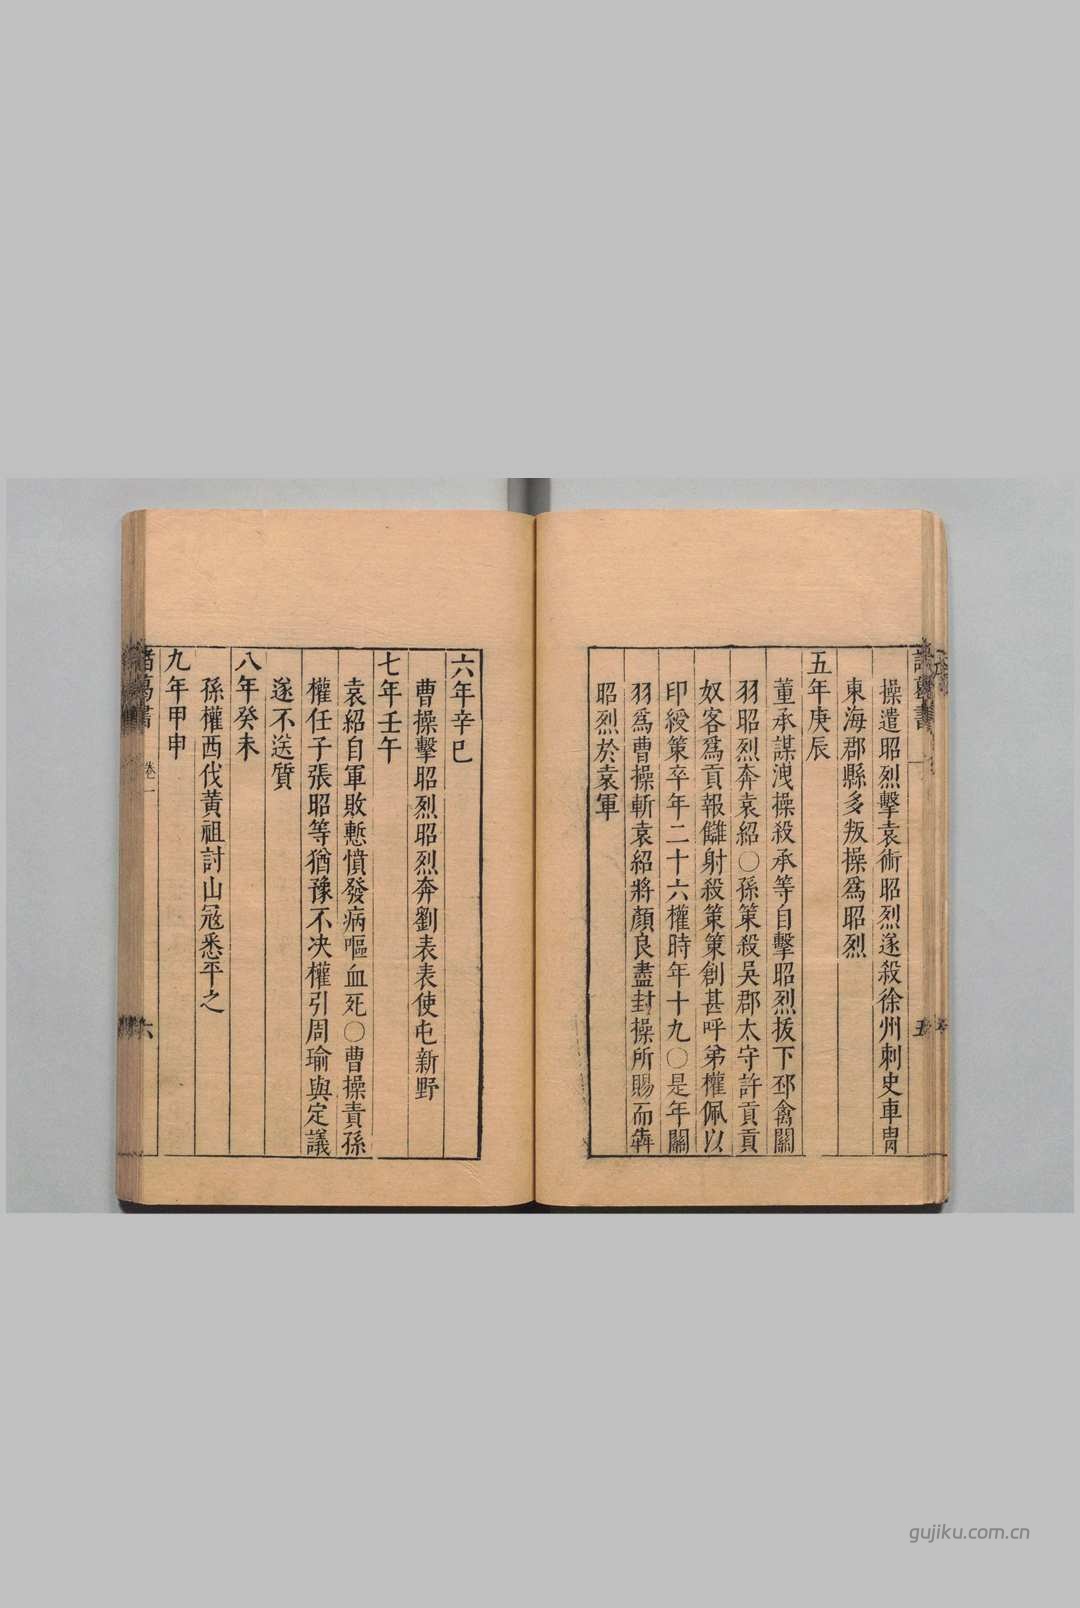 操遣昭烈擊袁術昭烈遂殺徐州刺史車胄
東海郡縣多叛操爲昭烈
五年庚辰
董承謀洩操殺承等自擊昭烈拔下邳禽關
羽昭烈奔袁紹〇孫策殺吳郡太守許貢貢
奴客爲貢報讎射殺策策創甚呼弟權佩以
印綬策卒年二十六權時年十九〇是年關
羽爲曹操斬袁紹將顏良盡封操所賜而犇
昭烈於袁軍
六年辛巳
曹操擊昭烈昭烈奔劉表表使屯新野
七年壬午
袁紹自軍敗慙憤發病嘔血死〇曹操責孫
權任子張昭等猶豫不决權引周瑜與定議
遂不送質
八年癸未
孫權西伐黃祖討山冦悉平之
九年甲申
諸葛書 卷一 六
gujiku.com.cn